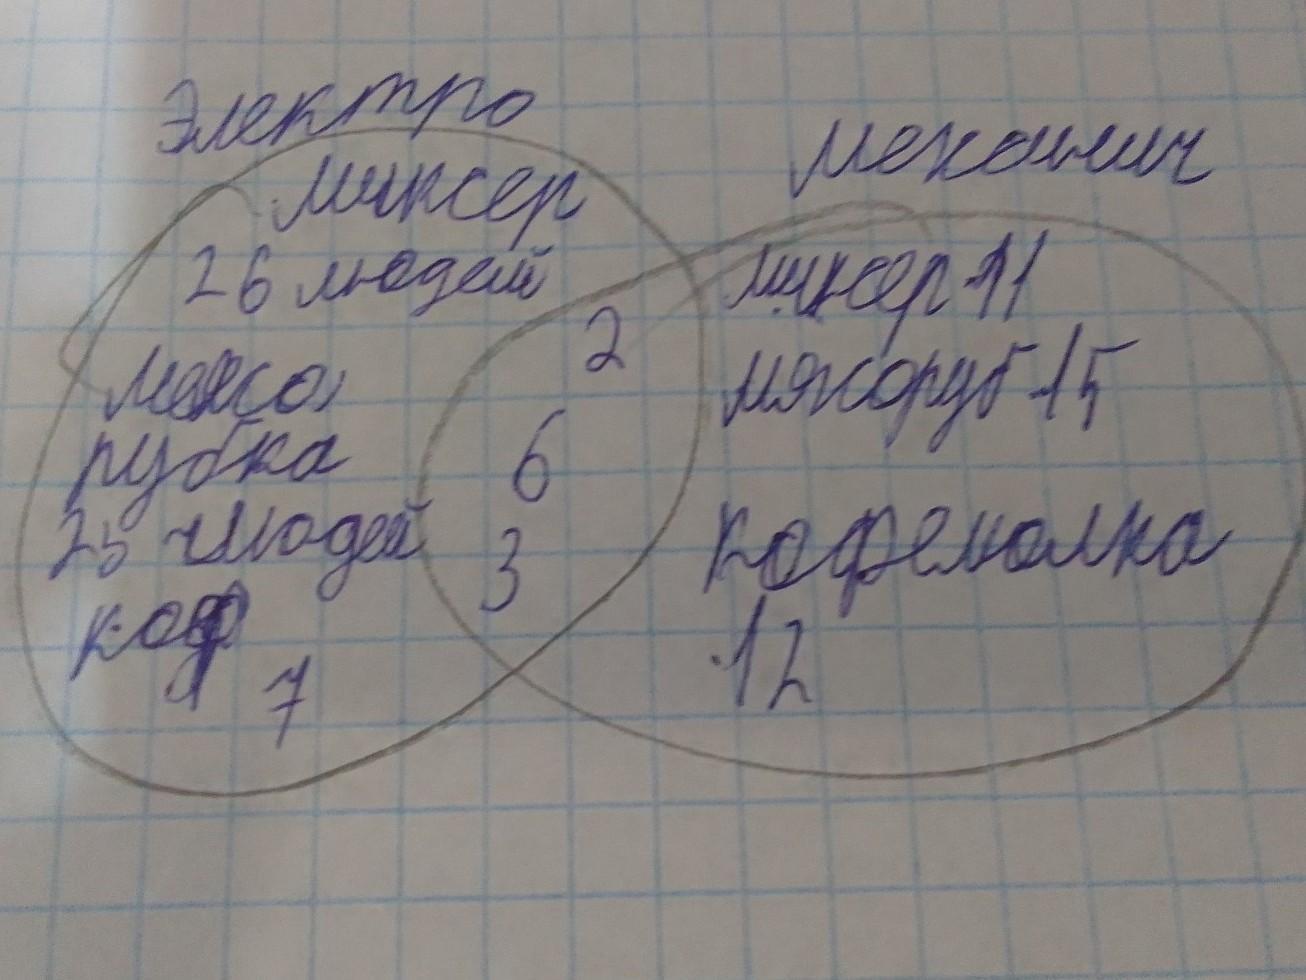 Электро
механич
миксер
26 людей
мясо
рубка
25 людей
коф
7
2
6
3
миксер 11
мясоруб 15
кофемолка
12